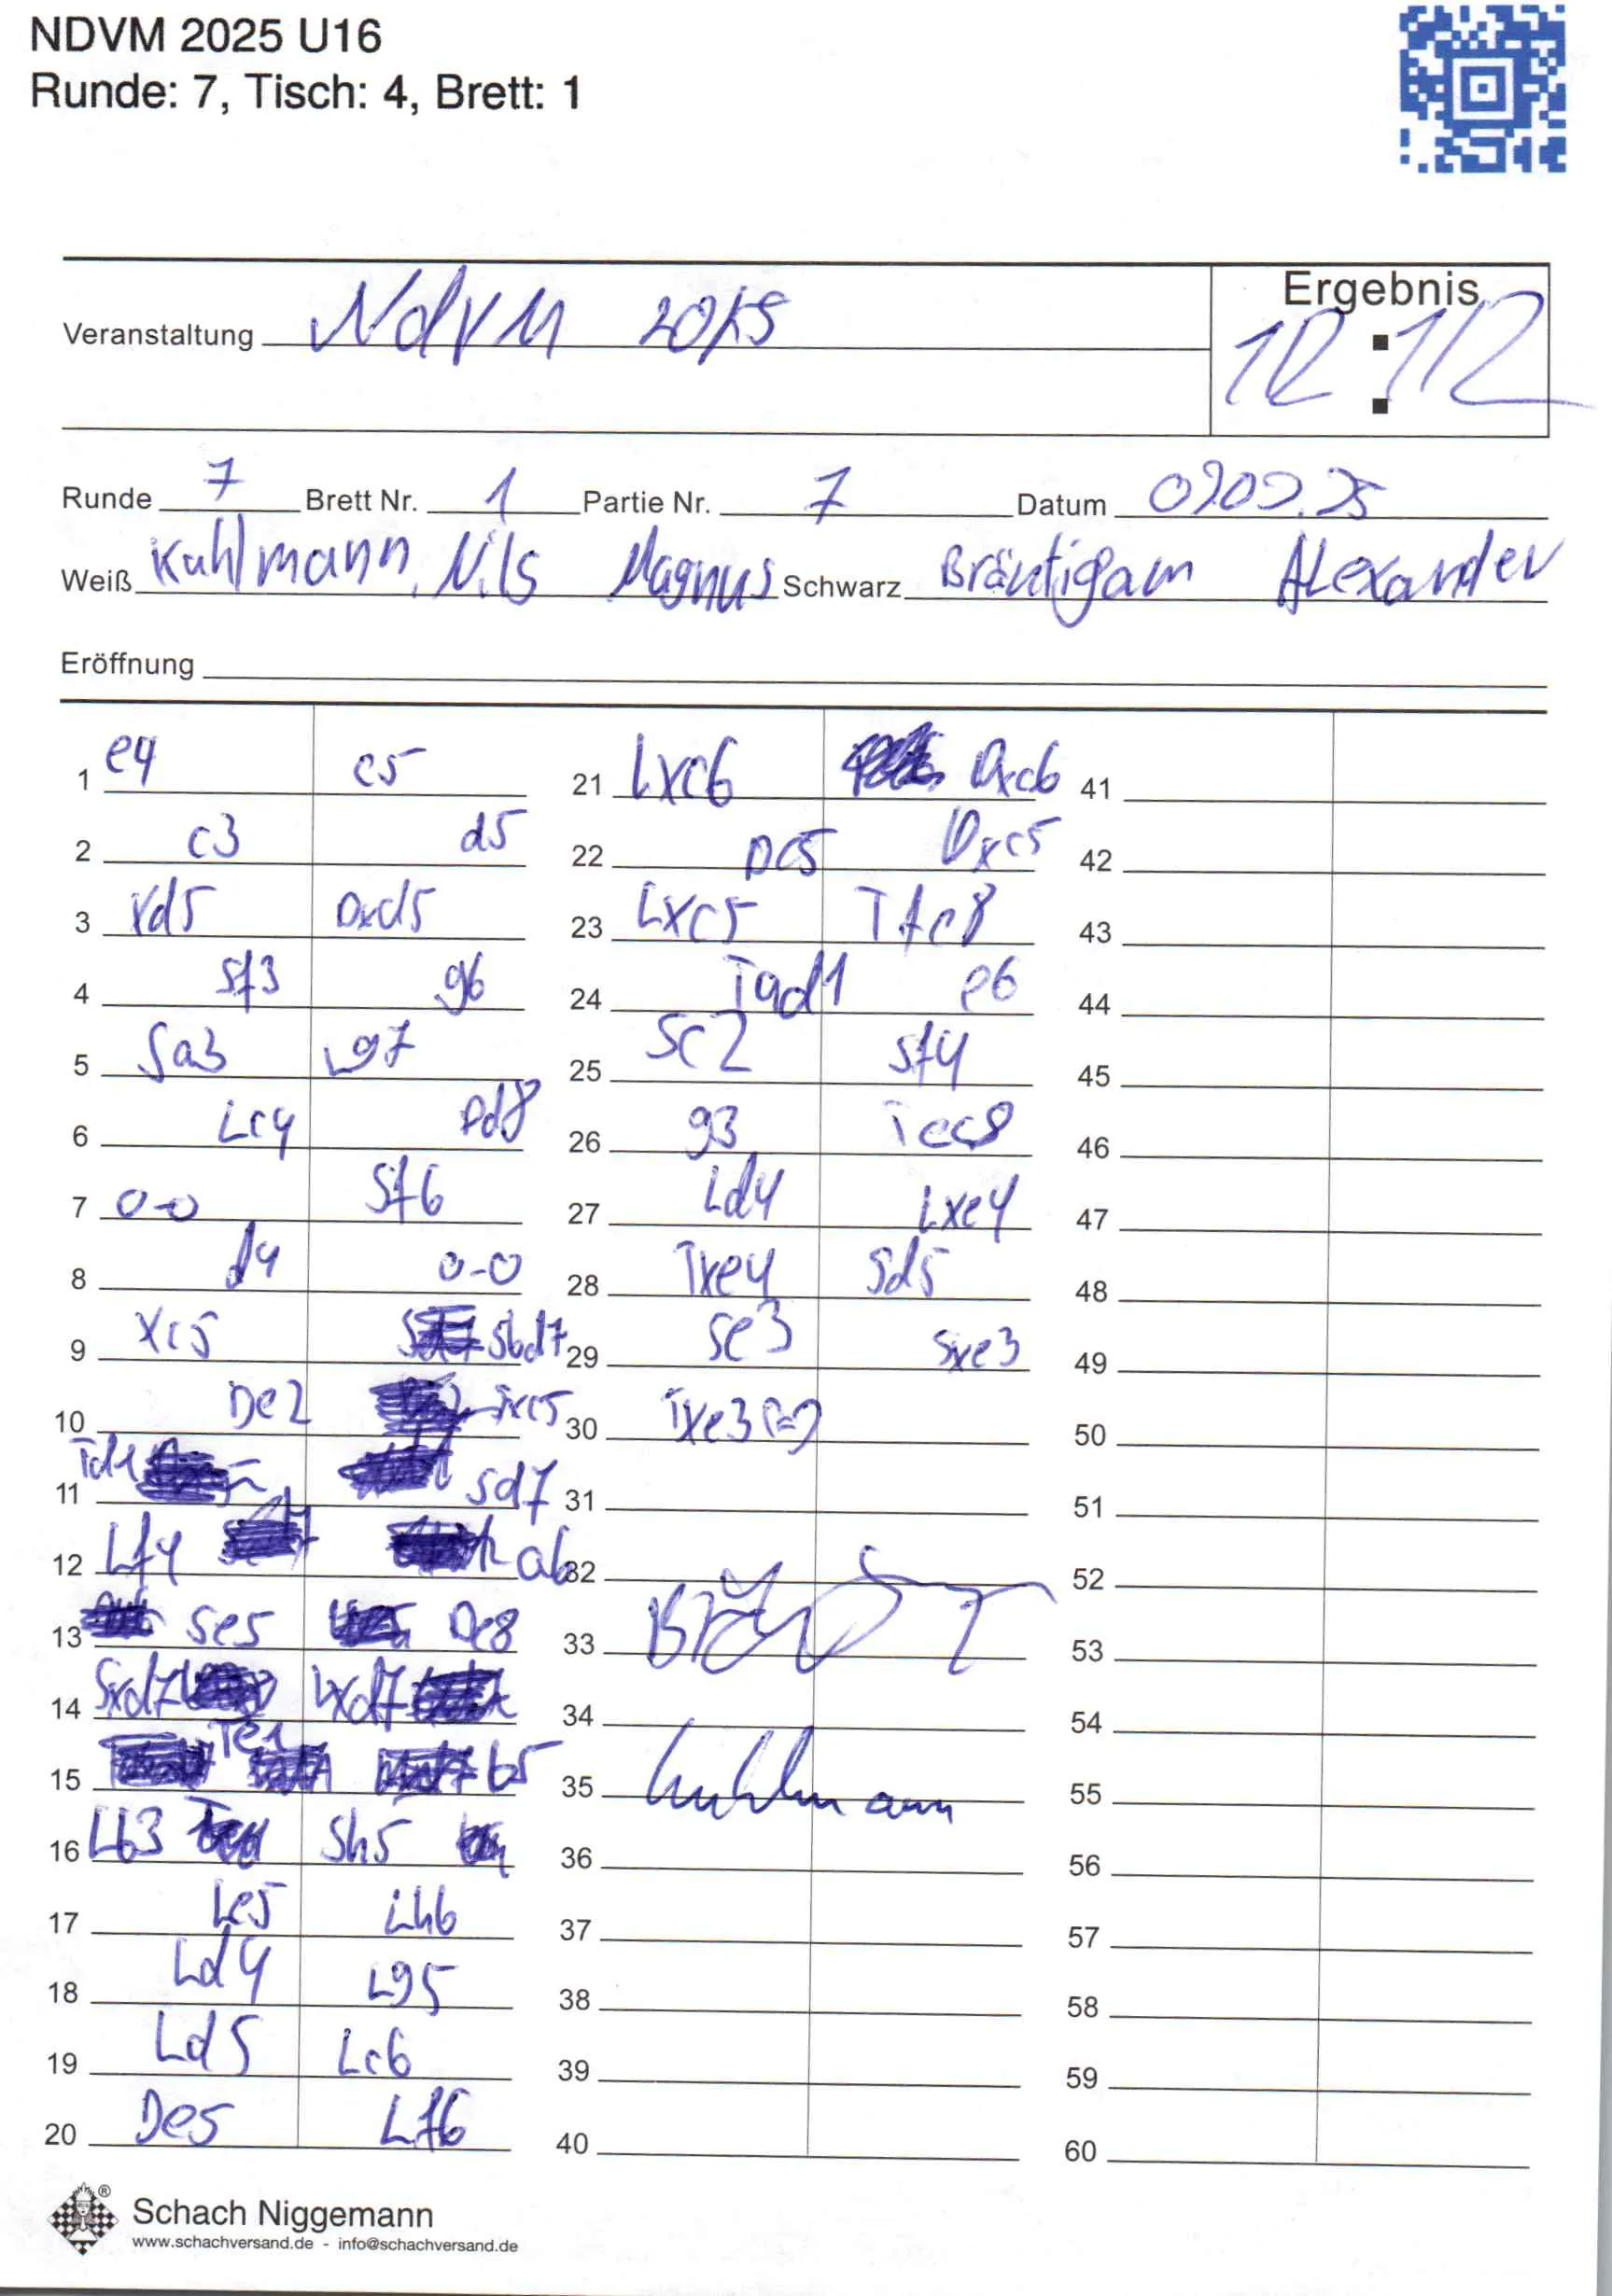 NDVM 2025 U16
Runde: 7, Tisch: 4, Brett: 1
Ergebnis
Veranstaltung NdVM 2025
1/2 : 1/2
Runde 7 Brett Nr. 1 Partie Nr. 7 Datum 07.07.25
Weiß Kuhlmann, Nils Magnus Schwarz Bräutigam Alexander
Eröffnung
1 e4 c5
2 c3 d5
3 xd5 Dxd5
4 Sf3 g6
5 Sa3 Lg7
6 Lc4 Dd8
7 0-0 Sf6
8 d4 0-0
9 xc5 Sbd7
10 De2 Sxc5
11 Td1 Sd7
12 Lf4 a6
13 Se5 De8
14 Sxd7 Lxd7
15 Te1 b5
16 Lb3 Sh5
17 Le5 Lh6
18 Ld4 Lg5
19 Ld5 Lc6
20 De5 Lf6
21 Lxc6 Dxc6
22 Dc5 Dxc5
23 Lxc5 Tfe8
24 Tad1 e6
25 Sc2 Sf4
26 g3 Tec8
27 Ld4 Lxe4
28 Txe4 Sd5
29 Se3 Sxe3
30 Txe3(=)
31
32
33
34
35 Kuhlmann
36
37
38
39
40
41
42
43
44
45
46
47
48
49
50
51
52
53
54
55
56
57
58
59
60
Schach Niggemann
www.schachversand.de - info@schachversand.de